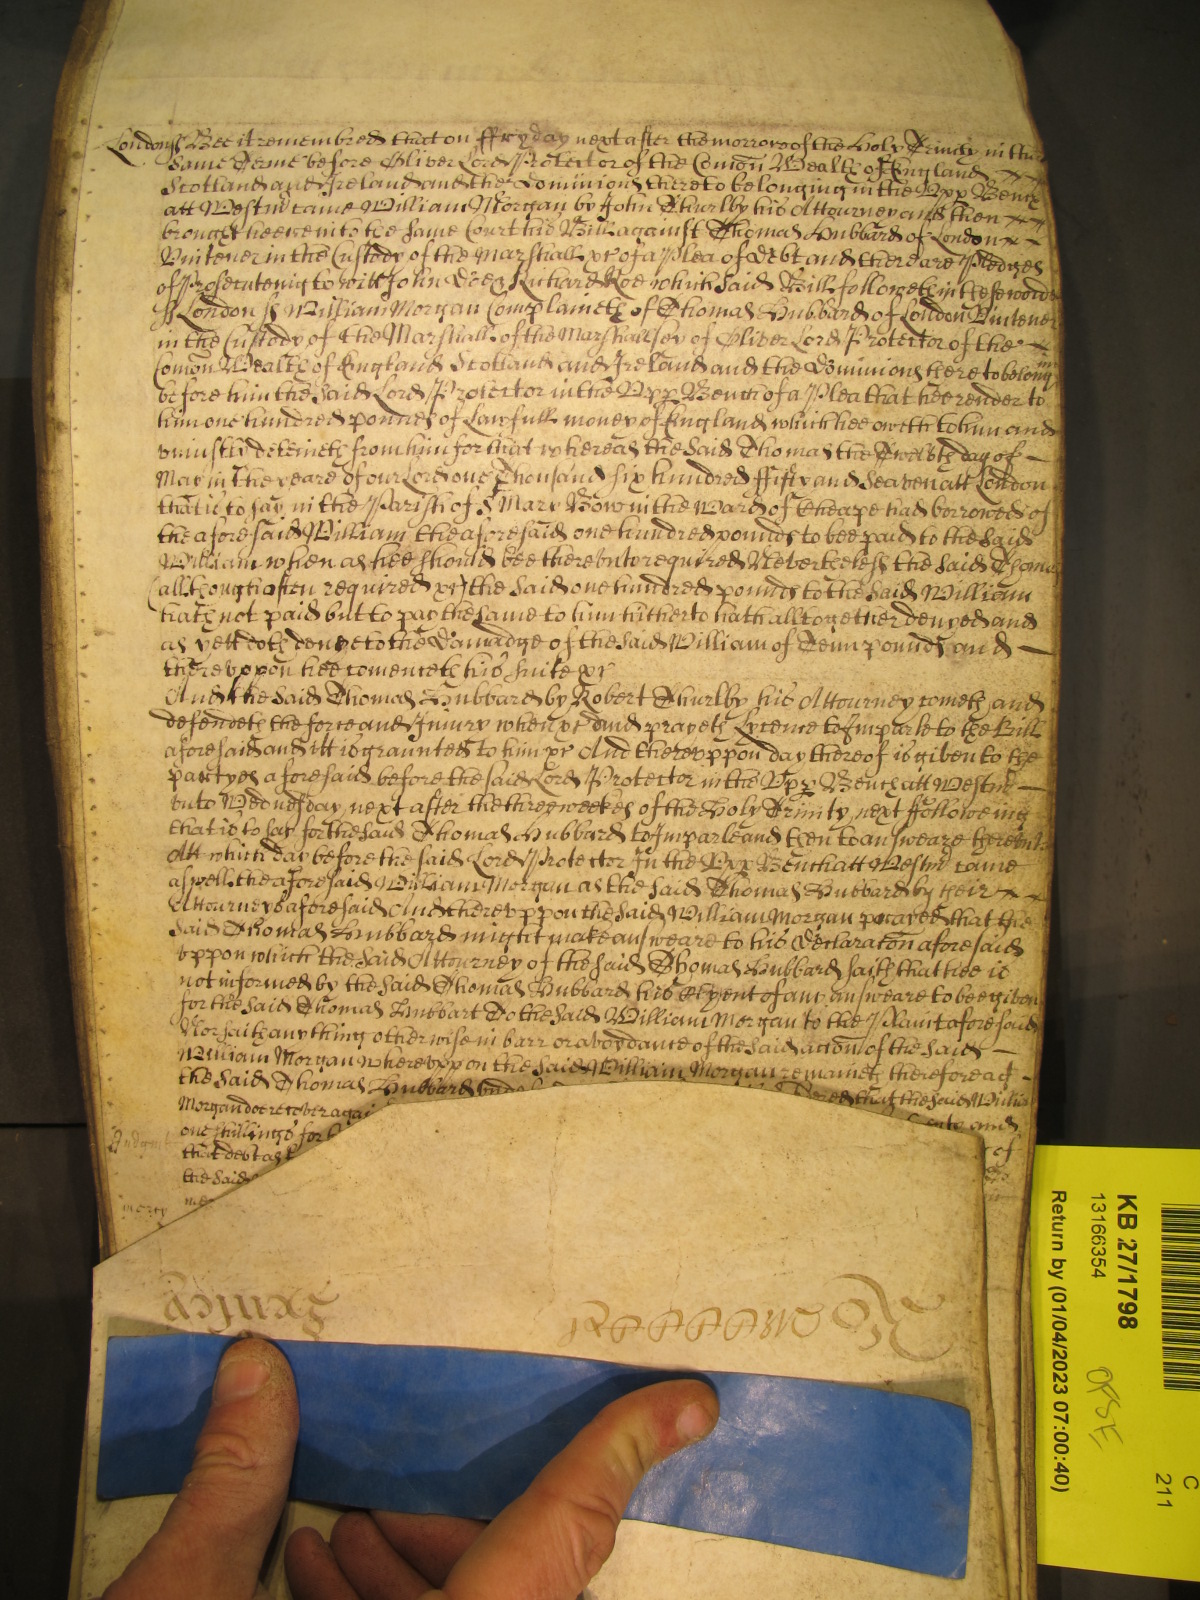 London ss Bee it remembred that on ffryday next after the morrow of the Holy Trinity in this
same Terme before Oliver Lord Protector of the Comon Wealth of England
Scotland and Ireland and the Dominions thereto belonging in the Vpp Bench
att Westm came William Morgan by John Thurlby his Attourney and then
brought heere into the same Court his Bill against Thomas Hubbard of London
Vintener in the Custody of the Marshall &c of a Plea of Debt and there are Pledges
of Prosecuteing to witt John Doe & Richard Roe which said Bill followeth in these words
ss London ss William Morgan Complaineth of Thomas Hubbard of London Vintener
in the Custody of the Marshall of the Marshallsey of Oliver Lord Protector of the
Comon Wealth of England Scotland and Ireland and the Dominions thereto belong
before him the said Lord Protector in the Vpp Bench of a Plea that hee render to
him one hundred pounds of Lawfull money of England which hee oweth to him and
vniustly deteineth from him for that whereas the said Thomas the Twelfth day of
May in the yeare of our Lord one Thousand six hundred ffifty and Seaven att London
that is to say in the Parish of S Mary Bow in the Ward of Cheape had borrowed of
the aforesaid William the aforesaid one hundred pounds to bee paid to the said
William when as hee should bee therevnto required Neverthelesse the said Thomas
(allthough often required &c) the said one hundred pounds to the said William
hath not paid but to pay the same to him hitherto hath alltogether denyed and
as yett doth denye to the Damadge of the said William of Tenn pounds and
therevppon hee comenceth his suite &c
And the said Thomas Hubbard by Robert Thurlby his Attourney cometh and
defendeth the force and Iniury when &c And prayeth Lycence to Imparle to the Bill
aforesaid and itt is graunted to him &c And therevppon day thereof is given to the
partyes aforesaid before the said Lord Protector in the Vpp Bench att Westm
vnto Wednesday next after the three weekes of the Holy Trinity next followeing
that is to say for the said Thomas Hubbard to Imparle and then to answeare therevnto
Att which day before the said Lord Protector In the Vpp Bench att Westm came
aswell the aforesaid William Morgan as the said Thomas Hubbard by their
Attourneys aforesaid And therevppon the said William Morgan prayed that the
said Thomas Hubbard might make answeare to his Declaraton aforesaid
vppon which the said Attourney of the said Thomas Hubbard saith that hee is
not informed by the said Thomas Hubbard his Clyent of any answeare to bee given
for the said Thomas Hubbart To the said William Morgan to the Plaint aforesaid
Nor saith any thing otherwise in barr or avoydance of the said action of the said
William Morgan wherevppon the said William Morgan remaineth therefore ag
the said Thomas Hubbard vnde that the said Willia
Morgan doe recover agai
one shillings for
that debt as of
the said
Judgmt
mercy
KB 27/1798
13166354
Return by (01/04/2023 07:00:40)
C
211